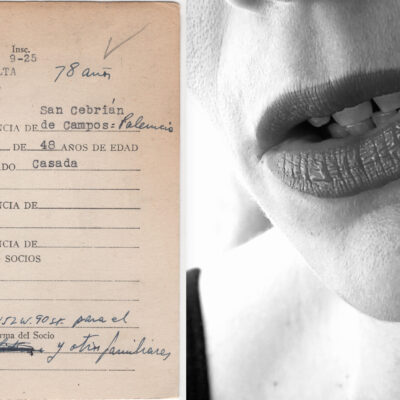 Insc.
9-25
LTA
78 años
San Cebrián
NCIA DE de Campos=Palencia
DE 48 AÑOS DE EDAD
DO Casada
NCIA DE
NCIA DE
SOCIOS
152 W. 90 St. para el
rma del Socio
y otros familiares